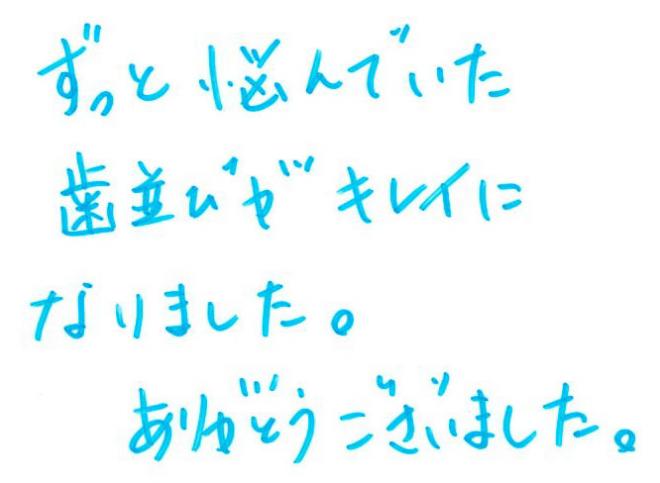 ずっと悩んでいた
歯並びがキレイに
なりました。
ありがどうございました。